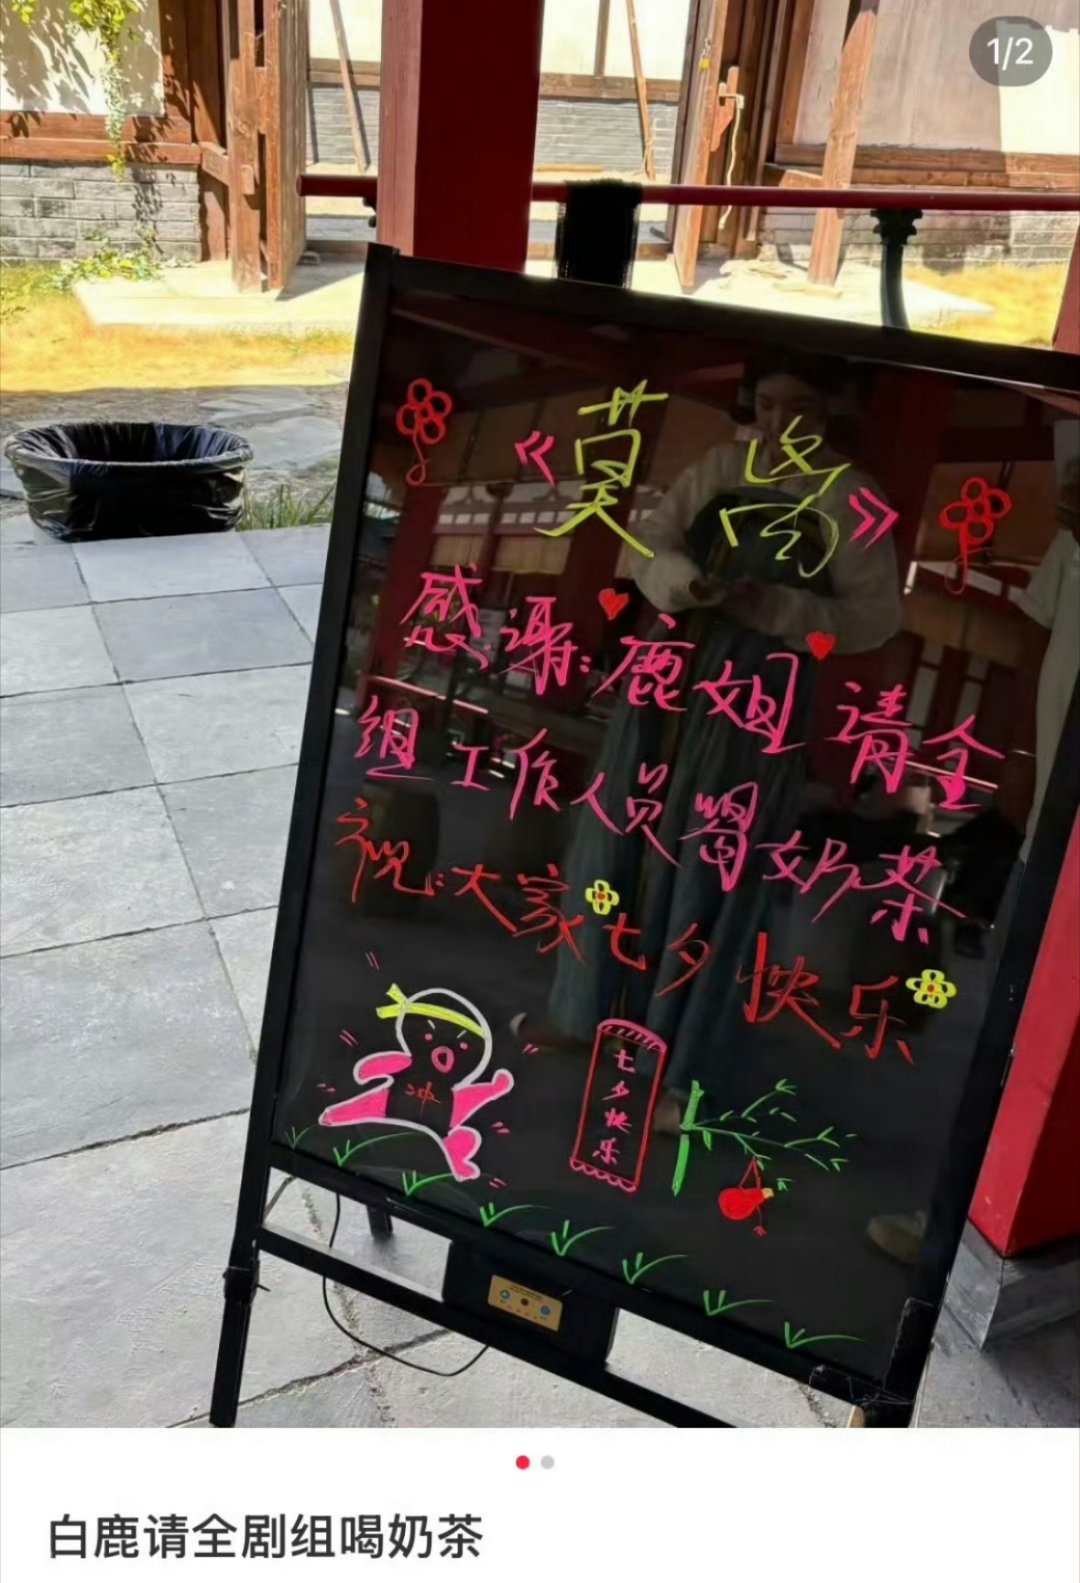 1/2
《莫离》
感谢:鹿姐请全
组工作人员喝奶茶
祝:大家七夕快乐
冲
七夕快乐
白鹿请全剧组喝奶茶